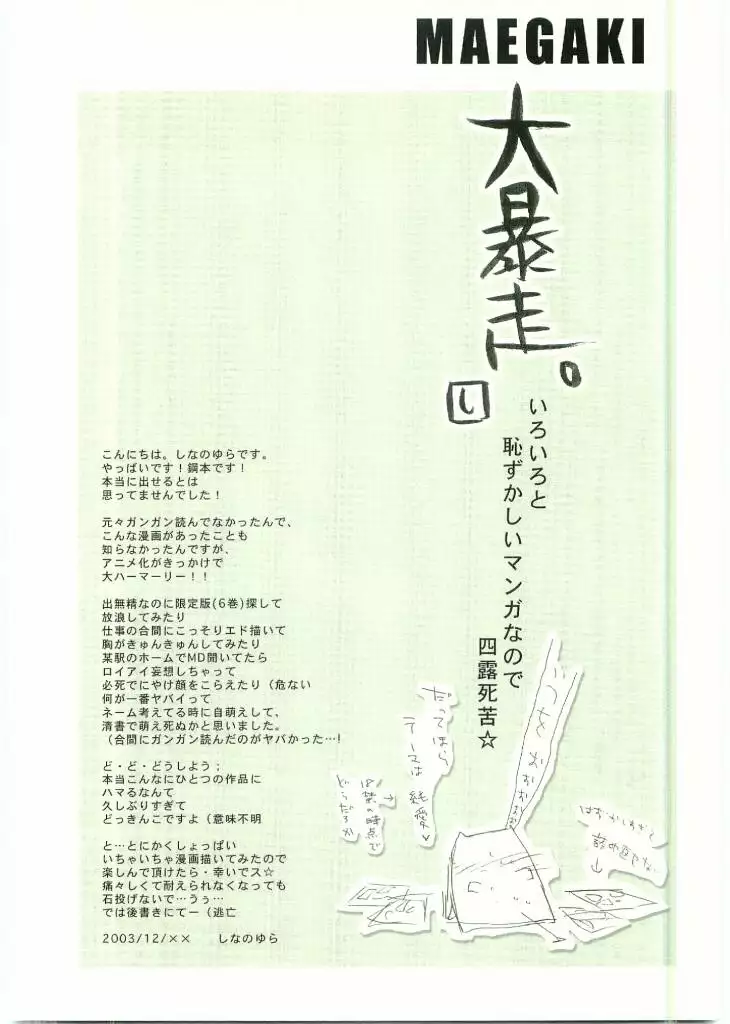 MAEGAKI
大暴走。
し
いろいろと
恥ずかしいマンガなので
四露死苦☆
こんにちは。しなのゆらです。
やっぱいです！鋼本です！
本当に出せるとは
思ってませんでした！
元々ガンガン読んでなかったんで、
こんな漫画があったことも
知らなかったんですが、
アニメ化がきっかけで
大ハーマーリー！！
出無精なのに限定版(6巻)探して
放浪してみたり
仕事の合間にこっそりエド描いて
胸がきゅんきゅんしてみたり
某駅のホームでMD開いてたら
ロイアイ妄想しちゃって
必死でにやけ顔をこらえたり（危ない
何が一番ヤバイって
ネーム考えてる時に自萌えして、
清書で萌え死ぬかと思いました。
（合間にガンガン読んだのがヤバかった…!
ど・ど・どうしよう；
本当こんなにひとつの作品に
ハマるなんて
久しぶりすぎて
どっきんこですよ（意味不明
と…とにかくしょっぱい
いちゃいちゃ漫画描いてみたので
楽しんで頂けたら・幸いでス☆
痛々しくて耐えられなくなっても
石投げないで…うぅ…
では後書きにてー（逃亡
2003/12/×× しなのゆら
だってほら
テーマは純愛
→18禁の時点で
どうだろか
はずかしすぎて